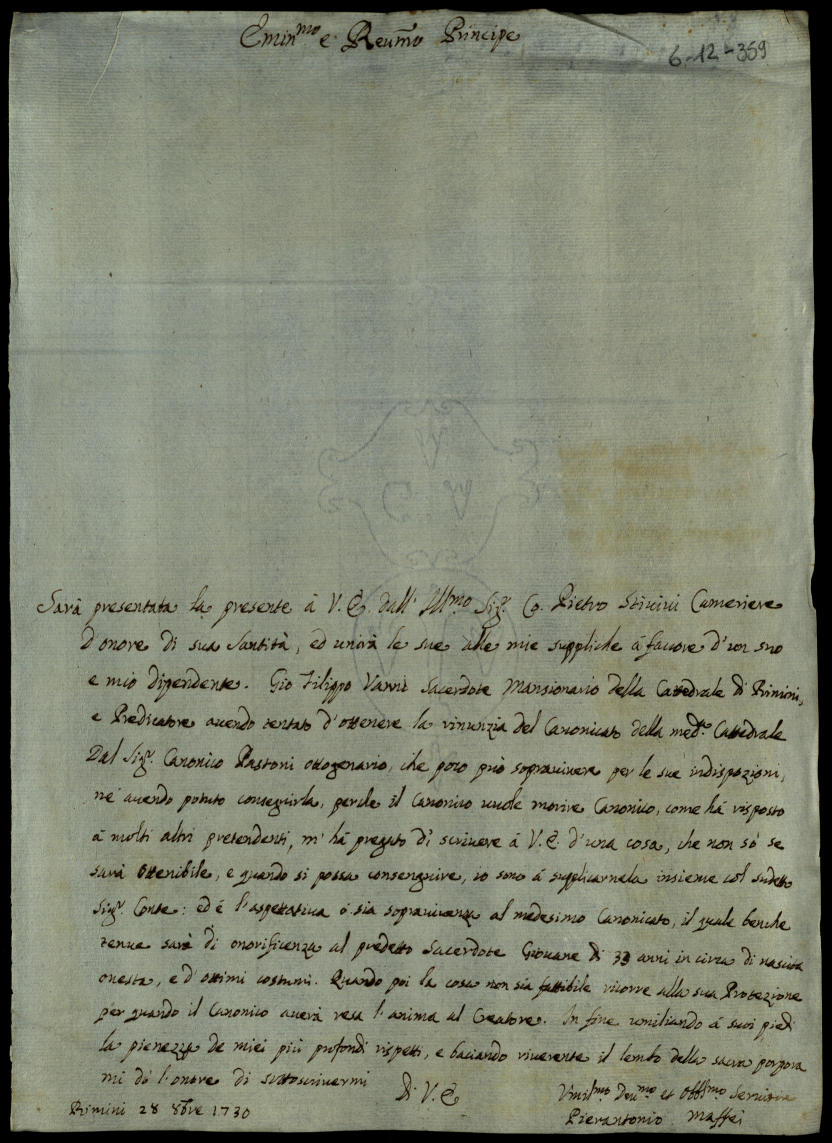 Emin.mo e Reu.mo Principe
6-12-359
Sarà presentata la presente à V. E. dall' Ill.mo Sig.r Co. Pietro Stivivi Cameriere
d'onore di sua Santità, ed unirà le sue alle mie suppliche à fauore d'un suo
e mio dipendente. Gio Filippo Vanni Sacerdote Mansionario della Cattedrale di Rimini,
e Predicatore auendo tentato d'ottenere la rinunzia del Canonicato della med.a Cattedrale
Dal Sig.r Canonico Pastoni ottogenario, che poco può soprauiuere per le sue indispozioni,
ne auendo potuto conseguirla, perche il Canonico uuole morire Canonico, come hà risposto
à molti altri pretendenti, m' hà pregato di scriuere à V. E. d'una cosa, che non sò se
sarà ottenibile, e quando si possa conseguire, io sono à supplicarnela insieme col sudetto
Sig.r Conte: ed è l'aspettatiua ò sia soprauiuenza al medesimo Canonicato, il quale benche
tenue sarà di onorificenza al predetto Sacerdote Giouane di 33 anni in circa di nascita
onesta, e d'ottimi costumi. Quando poi la cosa non sia fattibile ricorre alla sua Protezione
per quando il Canonico auerà resa l'anima al Creatore. In fine umiliando à suoi piedi
la pienezza de miei più profondi rispetti, e baciando riuerente il lembo della sacra porpora
mi dò l'onore di sottoscriuermi
Di V. E.
Rimini 28 8bre 1730
Umil.mo Deu.mo et Obbl.mo Seruitore
Pierantonio Maffei